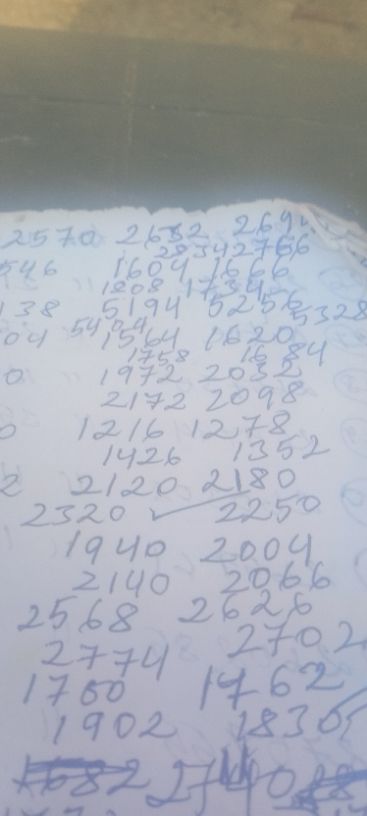 2570 2632 269
2834 2766
546 1604 1666
1808 1734
138 5194 5256 5328
04 5404 1564 1620
1758 1684
0 1972 2032
2172 2098
0 1216 1278
1426 1352
2 2120 2180
2320 2250
1940 2004
2140 2066
2568 2626
2774 2702
1700 1762
1902 1830